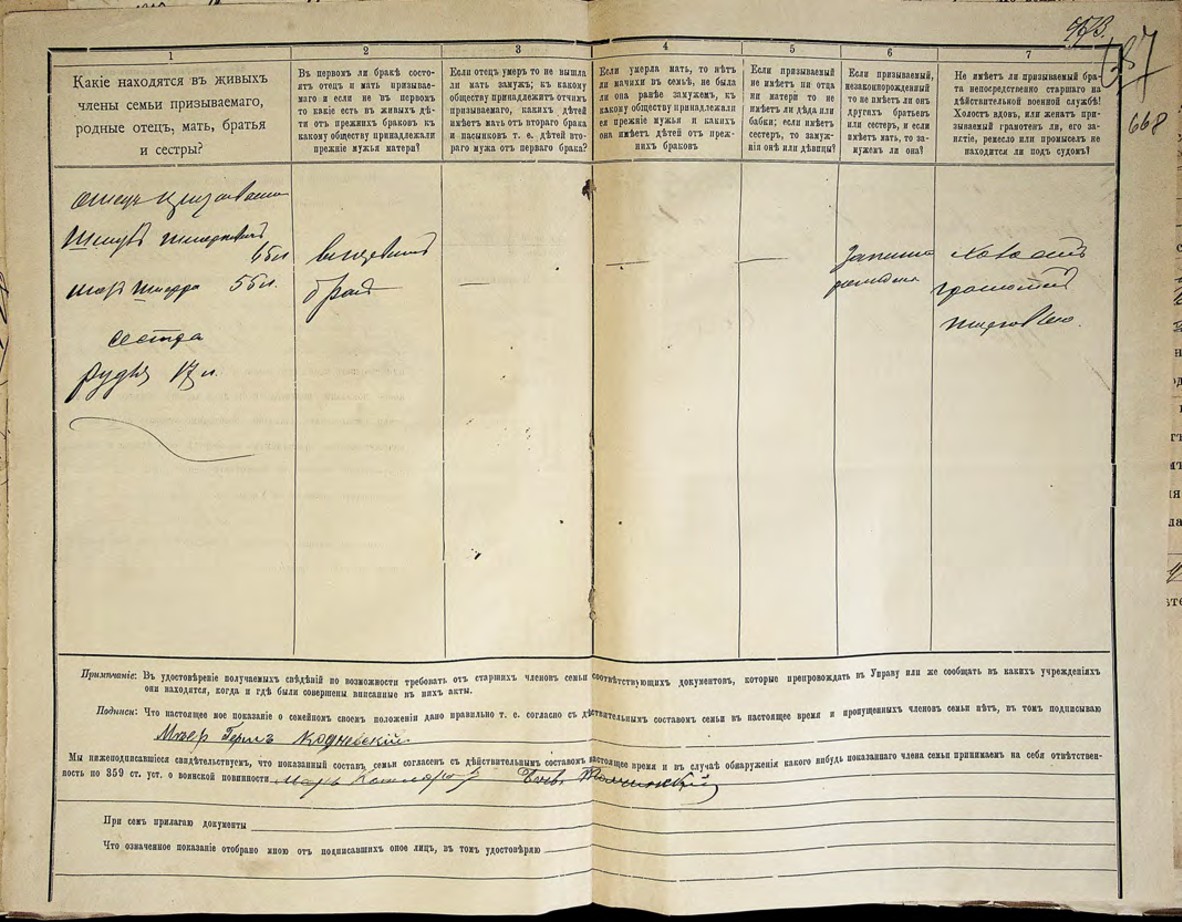 573.
187
668
1 2 3 4 5 6 7
Какіе находятся въ живыхъ
члены семьи призываемаго,
родные отецъ, мать, братья
и сестры?
Въ первомъ ли бракѣ состо-
ятъ отецъ и мать призывае-
маго и если не въ первомъ
то какіе есть въ живыхъ дѣ-
ти отъ прежнихъ браковъ къ
какому обществу принадлежали
прежніе мужья матери?
Если отецъ умеръ то не вышла
ли мать замужъ; къ какому
обществу принадлежитъ отчимъ
призываемаго, какихъ дѣтей
имѣетъ мать отъ втораго брака
и пасынковъ т. е. дѣтей вто-
раго мужа отъ перваго брака?
Если умерла мать, то нѣтъ
ли мачихи въ семьѣ, не была
ли она ранѣе замужемъ, къ
какому обществу принадлежали
ея прежніе мужья и какихъ
она имѣетъ дѣтей отъ преж-
нихъ браковъ
Если призываемый
не имѣетъ ни отца
ни матери то не
имѣетъ ли дѣда или
бабки; если имѣетъ
сестеръ, то замуж-
нія онѣ или дѣвицы?
Если призываемый,
незаконорожденный
то не имѣетъ ли онъ
другихъ братьевъ
или сестеръ, и если
имѣетъ мать, то за-
мужемъ ли она?
Не имѣетъ ли призываемый бра-
та непосредственно старшаго на
дѣйствительной военной службѣ!
Холостъ адовъ, или женатъ при-
зываемый грамотенъ ли, его за-
нятіе, ремесло или промыселъ не
находится ли подъ судомъ?
отецъ
мать 55 л.
сестра
17 л.
бракѣ
холостъ
грамотный
Примѣчаніе: Въ удостовѣреніе получаемыхъ свѣдѣній по возможности требовать отъ старшихъ членовъ семьи соотвѣтствующихъ документовъ, которые препровождать въ Управу или же сообщать въ какихъ учрежденіяхъ
они находятся, когда и гдѣ были совершены вписанные въ нихъ акты.
Подписи: Что настоящее мое показаніе о семейномъ своемъ положеніи дано правильно т. е. согласно съ дѣйствительнымъ составомъ семьи въ настоящее время и пропущенныхъ членовъ семьи нѣтъ, въ томъ подписываю
Меер Гершъ Кодневскій
Мы нижеподписавшіеся свидѣтельствуемъ, что показанный составъ семьи согласенъ съ дѣйствительнымъ составомъ настоящее время и въ случаѣ обнаруженія какого нибудь показаннаго члена семьи принимаемъ на себя отвѣтствен-
ность по 359 ст. уст. о воинской повинности
При семъ прилагаю документы
Что означенное показаніе отобрано мною отъ подписавшихъ оное лицъ, въ томъ удостовѣряю